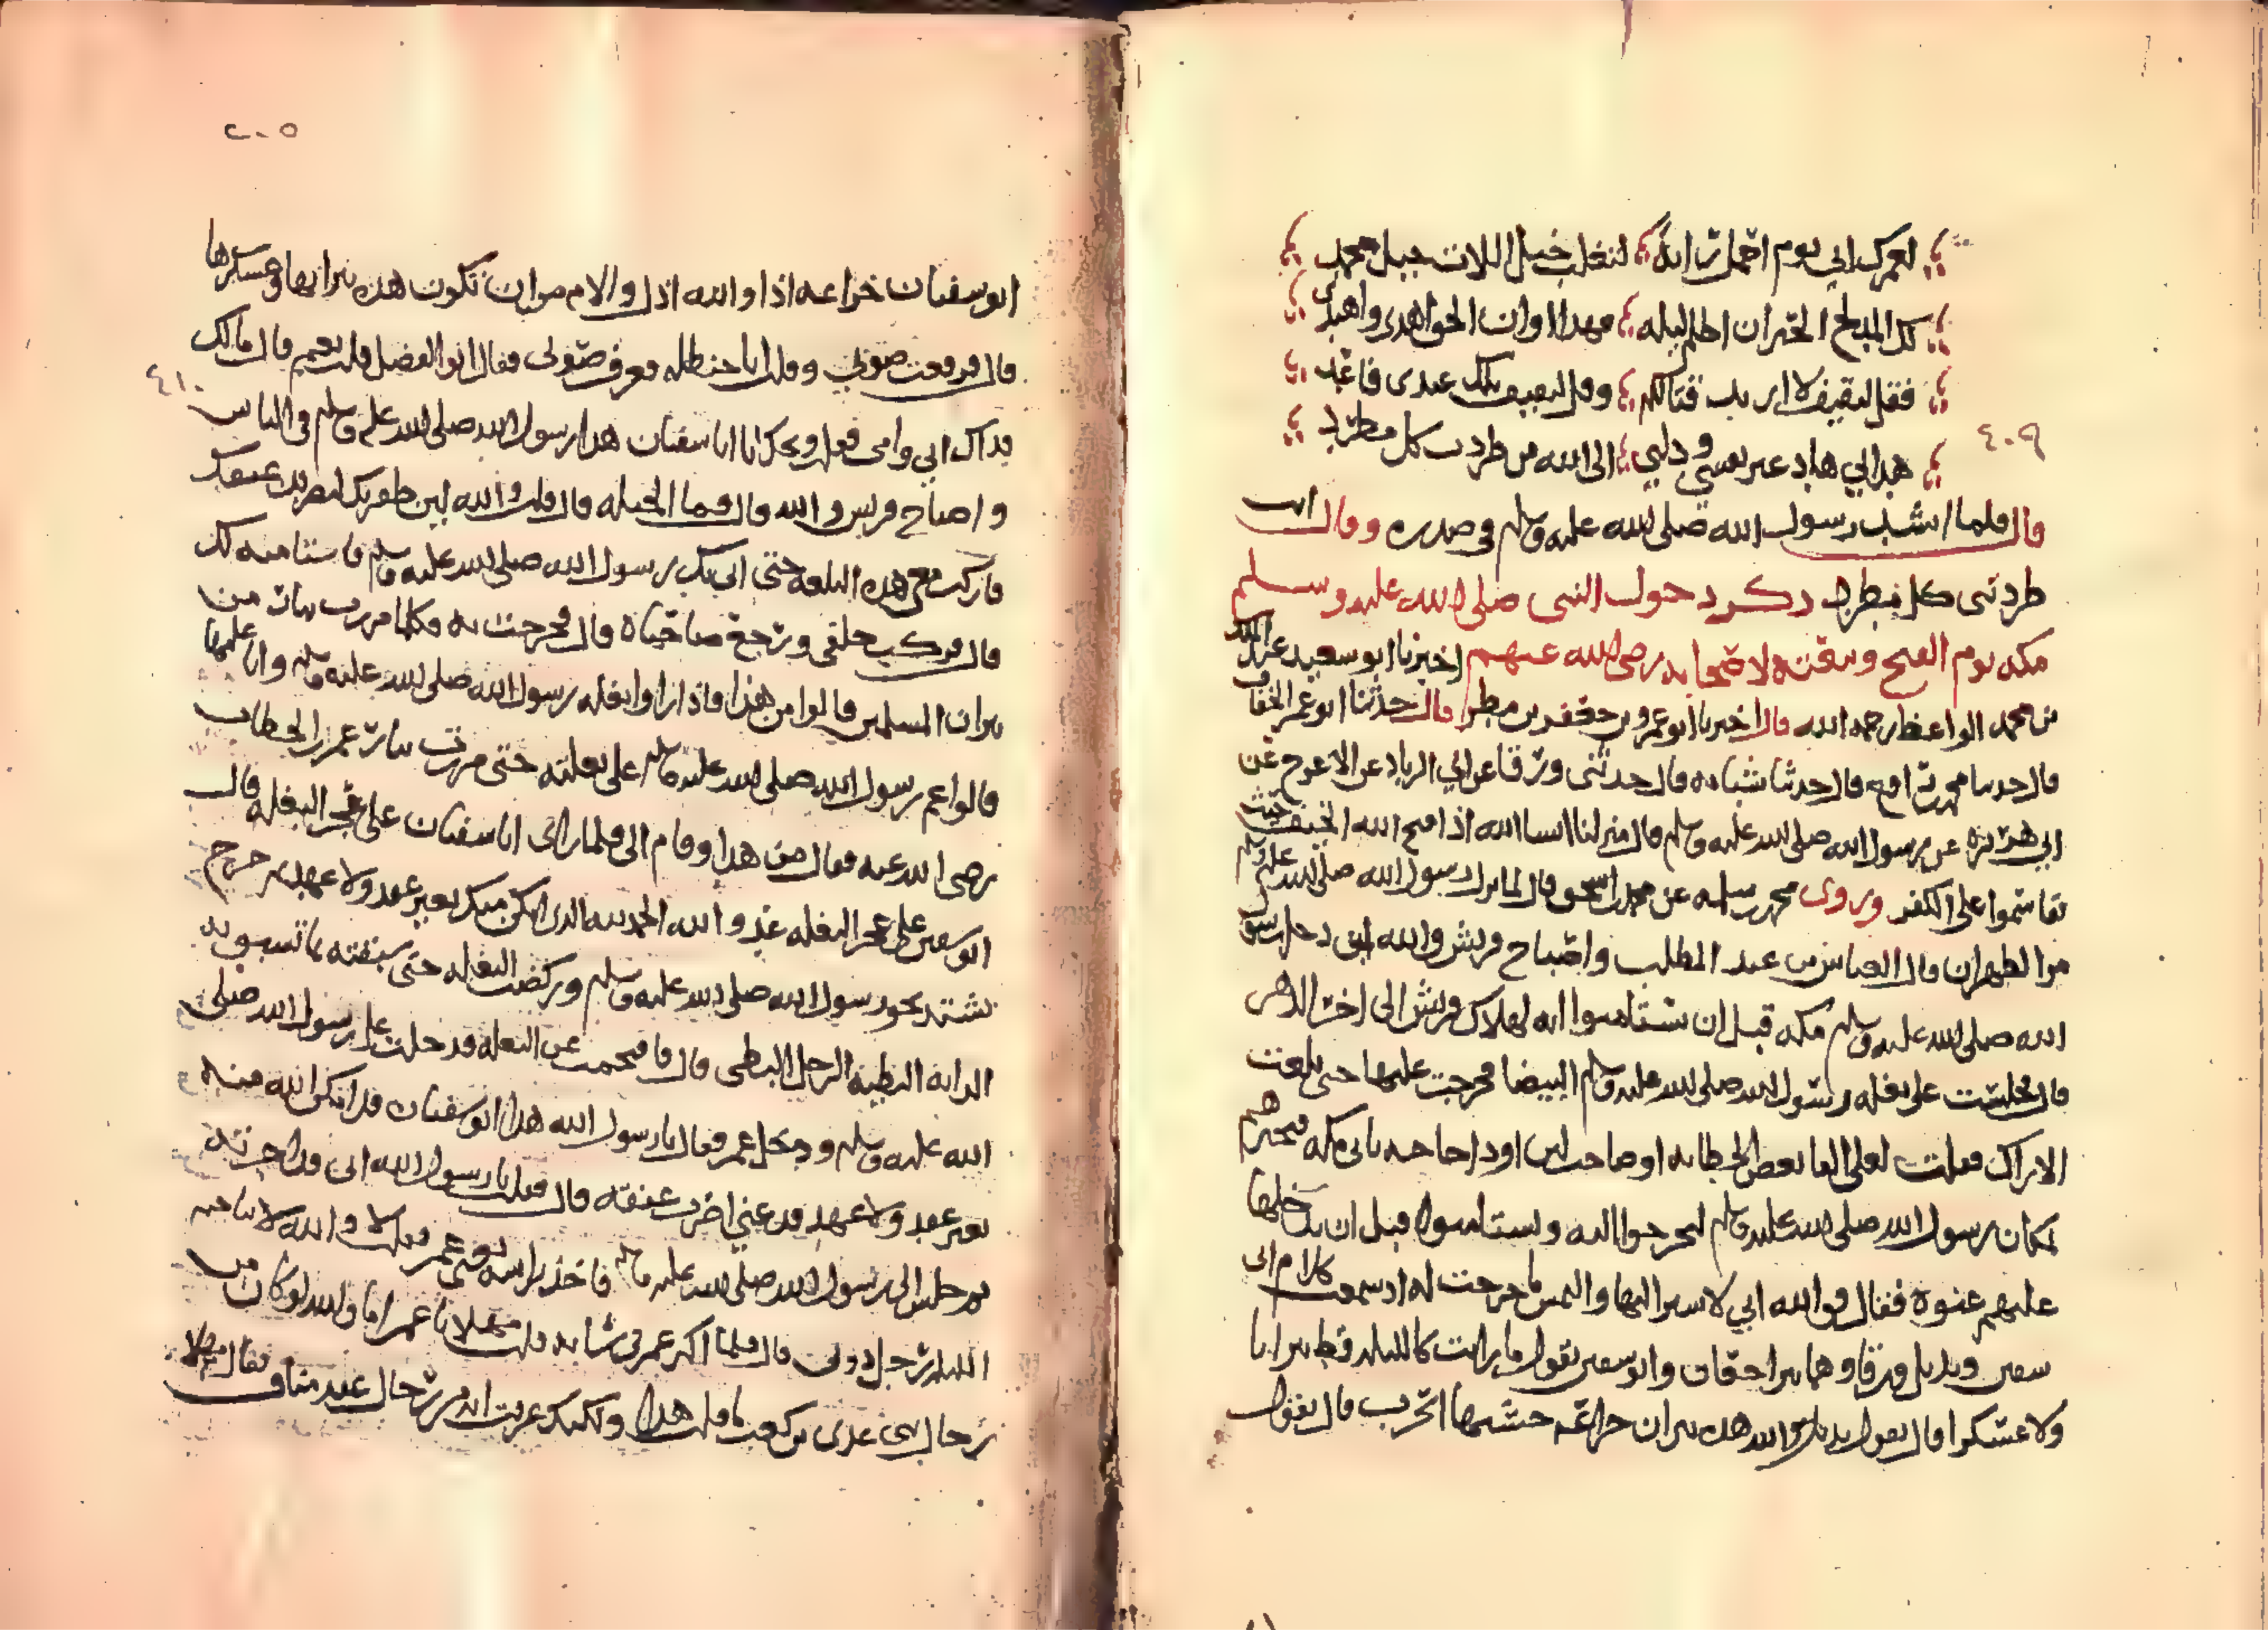 لعمرك اني يوم احمل راية لتغلب خيل اللات خيل محمد
لكالمدلج الحيران اظلم ليله فهذا اوان الحق اهدى واهتدى
فقل لثقيف لا اريد قتالكم وقل لثقيف تلك عندي فاوعد
هداني هاد غير نفسي ودلني الى الله من طردت كل مطرد
٤٠٩
قال فلما انشد رسول الله صلى الله عليه وسلم في صدره وقال انت
طردتني كل مطرد ذكر دخول النبي صلى الله عليه وسلم
مكة يوم الفتح وبيقته لاصحابه رضي الله عنهم اخبرنا ابو سعيد عبد الملك
بن محمد الواعظ رحمه الله قال اخبرنا ابو عمرو بن جعفر بن مطر قال حدثنا ابو عمر الخفاف
قال حدثنا محمد بن رافع قال حدثنا شبابه قال حدثني ورقا عن ابي الزناد عن الاعرج عن
ابي هريرة عن رسول الله صلى الله عليه وسلم قال منزلنا ان شا الله اذا فتح الله الخيف حيث
تقاسموا على الكفر وروى محمد بن سلمه عن محمد بن اسحق قال لما نزل رسول الله صلى الله عليه وسلم
مر الظهران قال العباس بن عبد المطلب واصباح قريش والله لئن دخل رسول
الله صلى الله عليه وسلم مكه قبل ان يستامنوا انه لهلاك قريش الى اخر الدهر
قال فجلست على بغله رسول الله صلى الله عليه وسلم البيضا فخرجت عليها حتى بلغت
الاراك فقلت لعلي القا بعض الحطابه او صاحب لبن او ذا حاجه ياتي مكه فيخبرهم
بمكان رسول الله صلى الله عليه وسلم ليخرجوا اليه ويستامنوه قبل ان يدخلها
عليهم عنوة فقال فوالله اني لاسير اليها والتمس ما خرجت له اذ سمعت كلام ابي
سفين وبديل بن ورقا وهما يتراجعان وابو سفين يقول ما رايت كالليله قط نيرانا
ولا عسكرا قال يقول بديل والله هذه نيران خزاعه حمشتها الحرب قال يقول
٢٠٥
ابو سفيان خزاعه اذا والله اذل والام من ان تكون هذه نيرانها وعسكرها
قال فرفعت صوتي وقلت ابا حنظله فعرف صوتي فقال ابو الفضل قلت نعم قال مالك
٤١٠
فداك ابي وامي فقلت ويحك يا ابا سفيان هذا رسول الله صلى الله عليه وسلم في الناس
واصباح قريش والله قال فما الحيله قال قلت والله لئن ظفر بك ليضربن عنقك
فاركب معي هذه البغله حتى اتي بك رسول الله صلى الله عليه وسلم فاستامنه لك
قال فركب خلفي ورجع صاحباه قال فخرجت به فكلما مررت بنار من
نيران المسلمين قالوا من هذا فاذا راوا بغله رسول الله صلى الله عليه وسلم وانا عليها
قالوا عم رسول الله صلى الله عليه وسلم على بغلته حتى مررت بنار عمر بن الخطاب
رضي الله عنه فقال من هذا وقام الي فلما راى ابا سفيان على عجز البغله قال
ابو سفين على عجز البغله عدو الله الحمد لله الذي امكن منك بغير عقد ولا عهد ثم خرج
يشتد نحو رسول الله صلى الله عليه وسلم وركضت البغله حتى سبقته بما تسبق به
الدابه البطيه الرجل البطي قال فاقتحمت عن البغله فدخلت على رسول الله صلى
الله عليه وسلم ودخل عمر فقال يا رسول الله هذا ابو سفيان قد امكن الله منه
بغير عقد ولا عهد فدعني اضرب عنقه قال فقلت يا رسول الله اني قد اجرته
ثم جلس الى رسول الله صلى الله عليه وسلم فاخذ براسه يعني عمر فقلت لا والله لا يناجيه
الليلة رجل دوني قال فلما اكثر عمر في شانه قلت مهلا يا عمر اما والله لو كان من
رجال بني عدي بن كعب ما قلت هذا ولكنك عرفت انه من رجال عبد مناف فقال مهلا